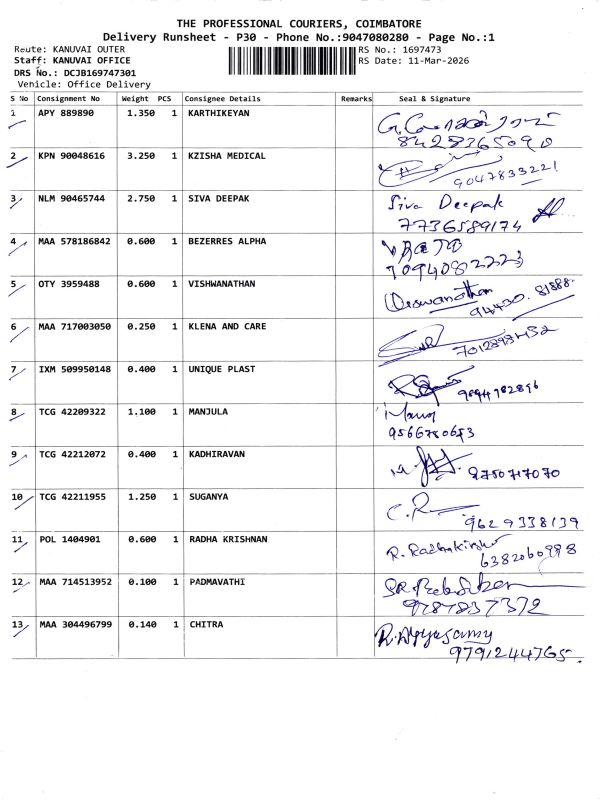 THE PROFESSIONAL COURIERS, COIMBATORE
Delivery Runsheet - P30 - Phone No.:9047080280 - Page No.:1
Route: KANUVAI OUTER RS No.: 1697473
Staff: KANUVAI OFFICE RS Date: 11-Mar-2026
DRS No.: DCJB169747301
Vehicle: Office Delivery
S No Consignment No Weight PCS Consignee Details Remarks Seal & Signature
1 APY 889890 1.350 1 KARTHIKEYAN
8428365090
2 KPN 90048616 3.250 1 KZISHA MEDICAL
9047833221
3 NLM 90465744 2.750 1 SIVA DEEPAK Siva Deepak
7736589174
4 MAA 578186842 0.600 1 BEZERRES ALPHA
7094082223
5 OTY 3959488 0.600 1 VISHWANATHAN Viswanathan
94430. 81888.
6 MAA 717003050 0.250 1 KLENA AND CARE
7 IXM 509950148 0.400 1 UNIQUE PLAST
9894782896
8 TCG 42209322 1.100 1 MANJULA Manoj
9566780653
9 TCG 42212072 0.400 1 KADHIRAVAN 9750717070
10 TCG 42211955 1.250 1 SUGANYA C.R
9629338139
11 POL 1404901 0.600 1 RADHA KRISHNAN R. Radhakrishn
6382060998
12 MAA 714513952 0.100 1 PADMAVATHI
9787837372
13 MAA 304496799 0.140 1 CHITRA R. Ayyasamy
9791244765.